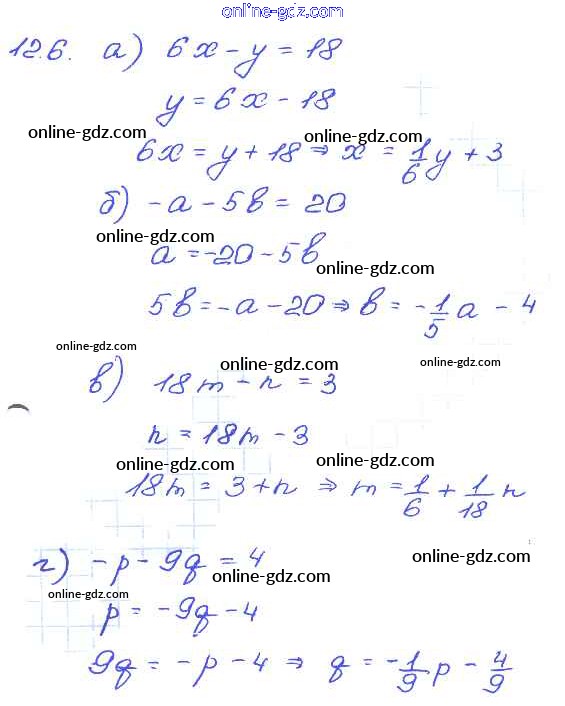 online-gdz.com
12.6. а) 6x - y = 18
y = 6x - 18
online-gdz.com online-gdz.com
6x = y + 18 ⇒ x = 1/6 y + 3
б) -a - 5b = 20
online-gdz.com
a = -20 - 5b
online-gdz.com
5b = -a - 20 ⇒ b = -1/5 a - 4
online-gdz.com online-gdz.com online-gdz.com
в) 18m - n = 3
n = 18m - 3
online-gdz.com online-gdz.com
18m = 3 + n ⇒ m = 1/6 + 1/18 n
г) -p - 9q = 4
online-gdz.com online-gdz.com
online-gdz.com
p = -9q - 4
9q = -p - 4 ⇒ q = -1/9 p - 4/9